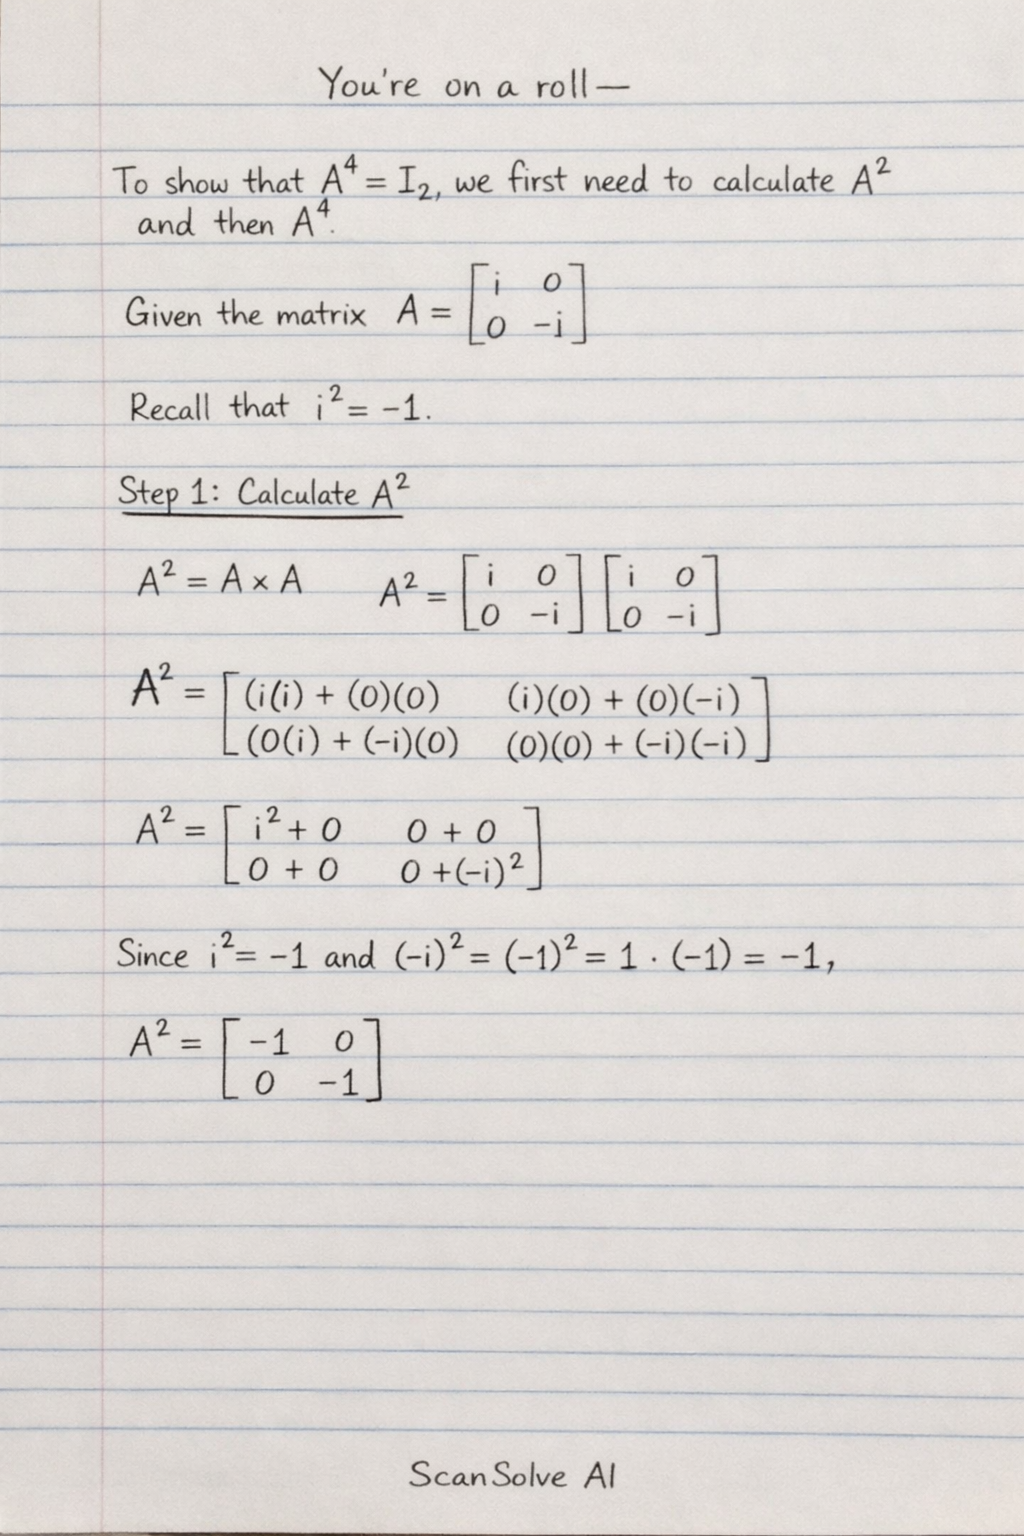 You're on a roll—
To show that A⁴ = I₂, we first need to calculate A²
and then A⁴.
Given the matrix A = [i 0
0 -i]
Recall that i² = -1.
Step 1: Calculate A²
A² = A × A A² = [i 0
0 -i] [i 0
0 -i]
A² = [(i(i) + (0)(0) (i)(0) + (0)(-i)
(0(i) + (-i)(0) (0)(0) + (-i)(-i)]
A² = [i² + 0 0 + 0
0 + 0 0 +(-i)²]
Since i² = -1 and (-i)² = (-1)² = 1 · (-1) = -1,
A² = [-1 0
0 -1]
ScanSolve AI